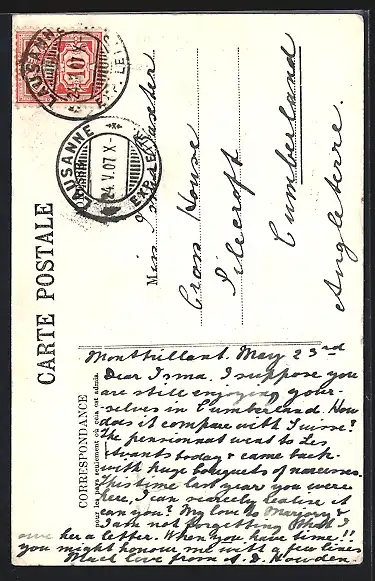 CARTE POSTALE
CORRESPONDANCE
pour les pays seulement où cela est admis.
LAUSANNE
LAUSANNE
24 V.07 X-
EXP. LETT
Miss Irma
Cross House
Silecroft
Cumberland
Angleterre.
Montbrillant. May 23rd
Dear Irma. I suppose you
are still enjoying your-
selves in Cumberland. How
does it compare with Suisse?
The pensionnat went to Les
Avants today & came back
with huge bouquets of narcisses.
This time last year you were
here, I can scarcely realise it
can you? My love to Marjory &
I am not forgetting that I
owe her a letter. When you have time!!
you might honour me with a few lines
Much love from